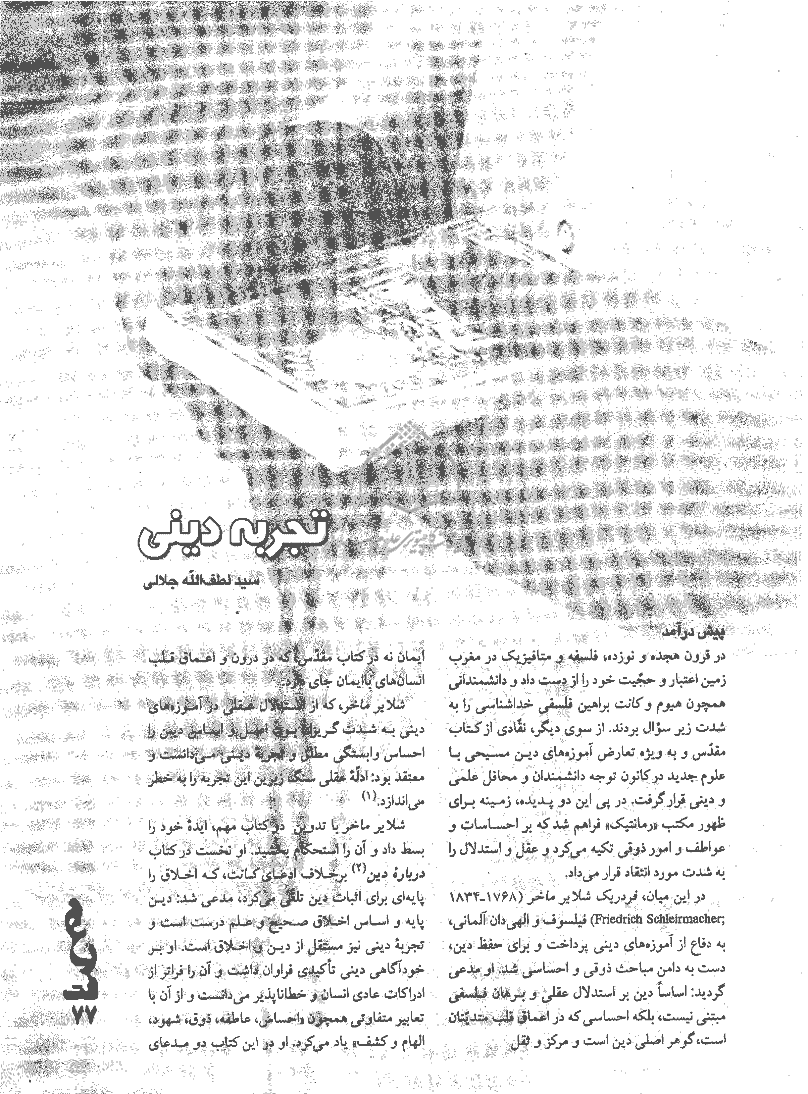 تجربه دینی
سید لطف‌الله جلالی
پیش درآمد
در قرون هجده و نوزده، فلسفه و متافیزیک در مغرب
زمین اعتبار و حجّیت خود را از دست داد و دانشمندانی
همچون هیوم و کانت براهین فلسفی خداشناسی را به
شدت زیر سؤال بردند. از سوی دیگر، نقّادی از کتاب
مقدّس و به ویژه تعارض آموزه‌های دین مسیحی با
علوم جدید در کانون توجه دانشمندان و محافل علمی
و دینی قرار گرفت. در پی این دو پدیده، زمینه برای
ظهور مکتب «رمانتیک» فراهم شد که بر احساسات و
عواطف و امور ذوقی تکیه می‌کرد و عقل و استدلال را
به شدت مورد انتقاد قرار می‌داد.
در این میان، فردریک شلایر ماخر (۱۷۶۸-۱۸۳۴
;Friedrich Schleirmacher) فیلسوف و الهی‌دان آلمانی،
به دفاع از آموزه‌های دینی پرداخت و برای حفظ دین،
دست به دامن مباحث ذوقی و احساسی شد. او مدعی
گردید: اساساً دین بر استدلال عقلی و برهان فلسفی
مبتنی نیست، بلکه احساسی که در اعماق قلب متدیّنان
است، گوهر اصلی دین است و مرکز و ثقل
ایمان نه در کتاب مقدّس که در درون و اعماق قلب
انسان‌های باایمان جای دارد.
شلایر ماخر، که از استدلال عقلی در آموزه‌های
دینی به شدت گریزان بود، اصل و اساس دین را
احساس وابستگی مطلق و تجربهٔ دینی می‌دانست و
معتقد بود: ادلّهٔ عقلی سنگ زیرین این تجربه را به خطر
می‌اندازد.(۱)
شلایر ماخر با تدوین دو کتاب مهم، ایدهٔ خود را
بسط داد و آن را استحکام بخشید. او نخست در کتاب
دربارهٔ دین(۲) برخلاف ادعای کانت، که اخلاق را
پایه‌ای برای اثبات دین تلقّی می‌کرد، مدعی شد: دین
پایه و اساس اخلاق صحیح و علم درست است و
تجربهٔ دینی نیز مستقل از دین و اخلاق است. او بر
خودآگاهی دینی تأکیدی فراوان داشت و آن را فراتر از
ادراکات عادی انسان و خطاناپذیر می‌دانست و از آن با
تعابیر متفاوتی همچون «احساس، عاطفه، ذوق، شهود،
الهام و کشف» یاد می‌کرد. او در این کتاب دو مدعای
معرفت
۷۷